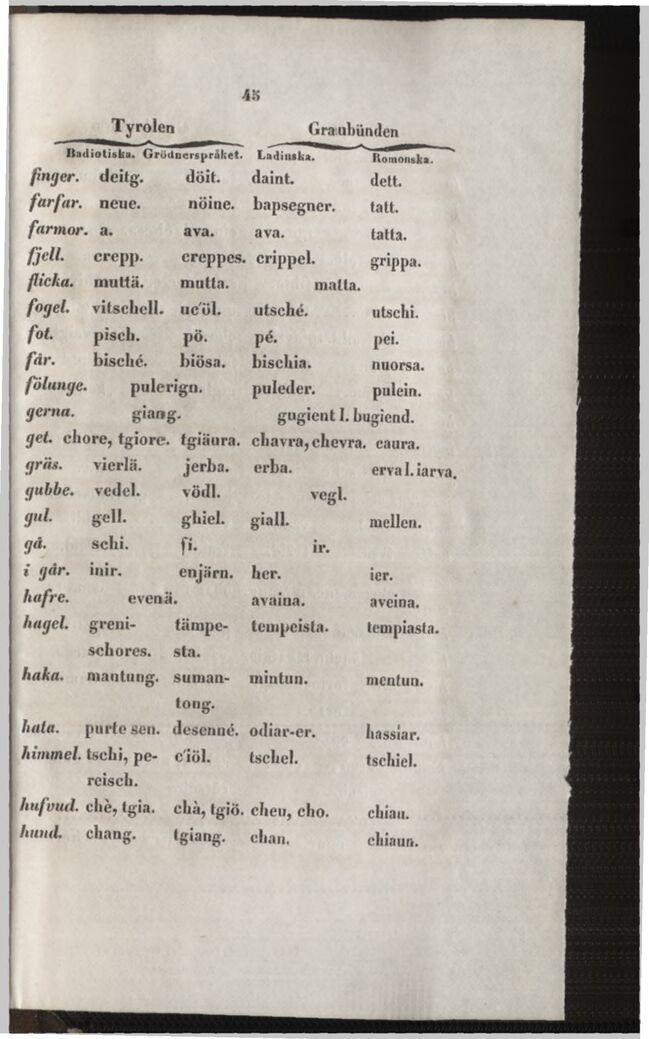 45
Tyrolen Graubünden
Badiotiska. Grödnerspråket. Ladinska. Romonska.
finger. deitg. döit. daint. dett.
farfar. neue. nöine. bapsegner. tatt.
farmor. a. ava. ava. tatta.
fjell. crepp. creppes. crippel. grippa.
flicka. muttä. mutta. matta.
fogel. vitschell. uc'öl. utsché. utschi.
fot. pisch. pö. pé. pei.
får. bisché. biösa. bischia. nuorsa.
fölunge. pulerign. puleder. pulein.
gerna. giang. gugient l. bugiend.
get. chore, tgiore. tgiäura. chavra, chevra. caura.
gräs. vierlä. jerba. erba. erva l. iarva.
gubbe. vedel. vödl. vegl.
gul. gell. ghiel. giall. mellen.
gå. schi. ſi. ir.
i går. inir. enjärn. her. ier.
hafre. evenä. avaina. aveina.
hagel. greni- tämpe- tempeista. tempiasta.
schores. sta.
haka. mantung. suman- mintun. mentun.
tong.
hata. purte sen. desenné. odiar-er. hassiar.
himmel. tschi, pe- c'iöl. tschel. tschiel.
reisch.
hufvud. chè, tgia. chà, tgiö. cheu, cho. chiau.
hund. chang. tgiang. chan. chiaun.